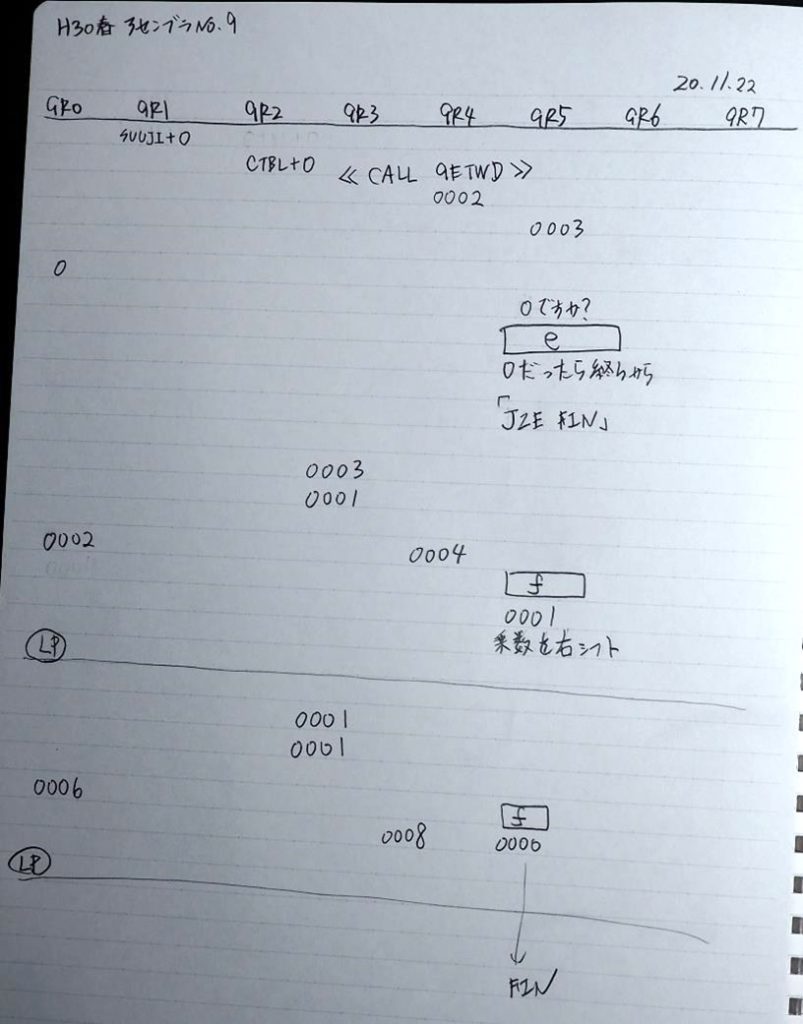 H30春 アセンブラNO.9
20.11.22
GR0 GR1 GR2 GR3 GR4 GR5 GR6 GR7
SUUJI+0
CTBL+0 ≪CALL GETWD≫
0002
0003
0
0ですか?
e
0だったら終りから
「JZE FIN」
0003
0001
0002 0004
f
0001
乗数を右シフト
LP
0001
0001
0006
f
0008 0000
LP
FIN